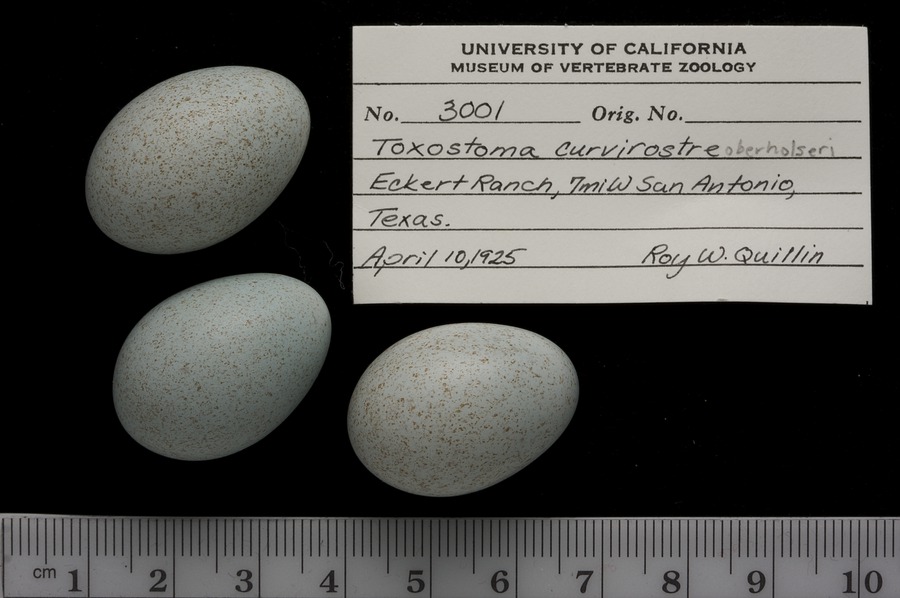 UNIVERSITY OF CALIFORNIA
MUSEUM OF VERTEBRATE ZOOLOGY
No. 3001 Orig. No.
Toxostoma curvirostre oberholseri
Eckert Ranch, 7mi W San Antonio,
Texas.
April 10, 1925 Roy W. Quillin
cm 1 2 3 4 5 6 7 8 9 10